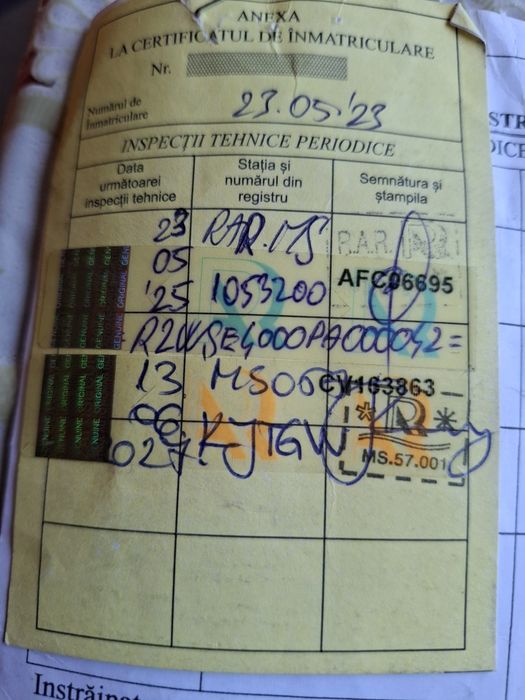 ANEXA
LA CERTIFICATUL DE ÎNMATRICULARE
Nr.
Numărul de
înmatriculare
23.05.'23
INSPECȚII TEHNICE PERIODICE
Data
următoarei
inspecții tehnice
Stația și
numărul din
registru
Semnătura și
ștampila
23
05
'25
RAR.MS
1053200
R.A.R.
AFC06695
13
06
027.
KJTGW
CV163863
MS.57.001
GENUINE ORIGINAL GENUINE
ORIGINAL GENUINE
STR
DICE
Înstrăinat